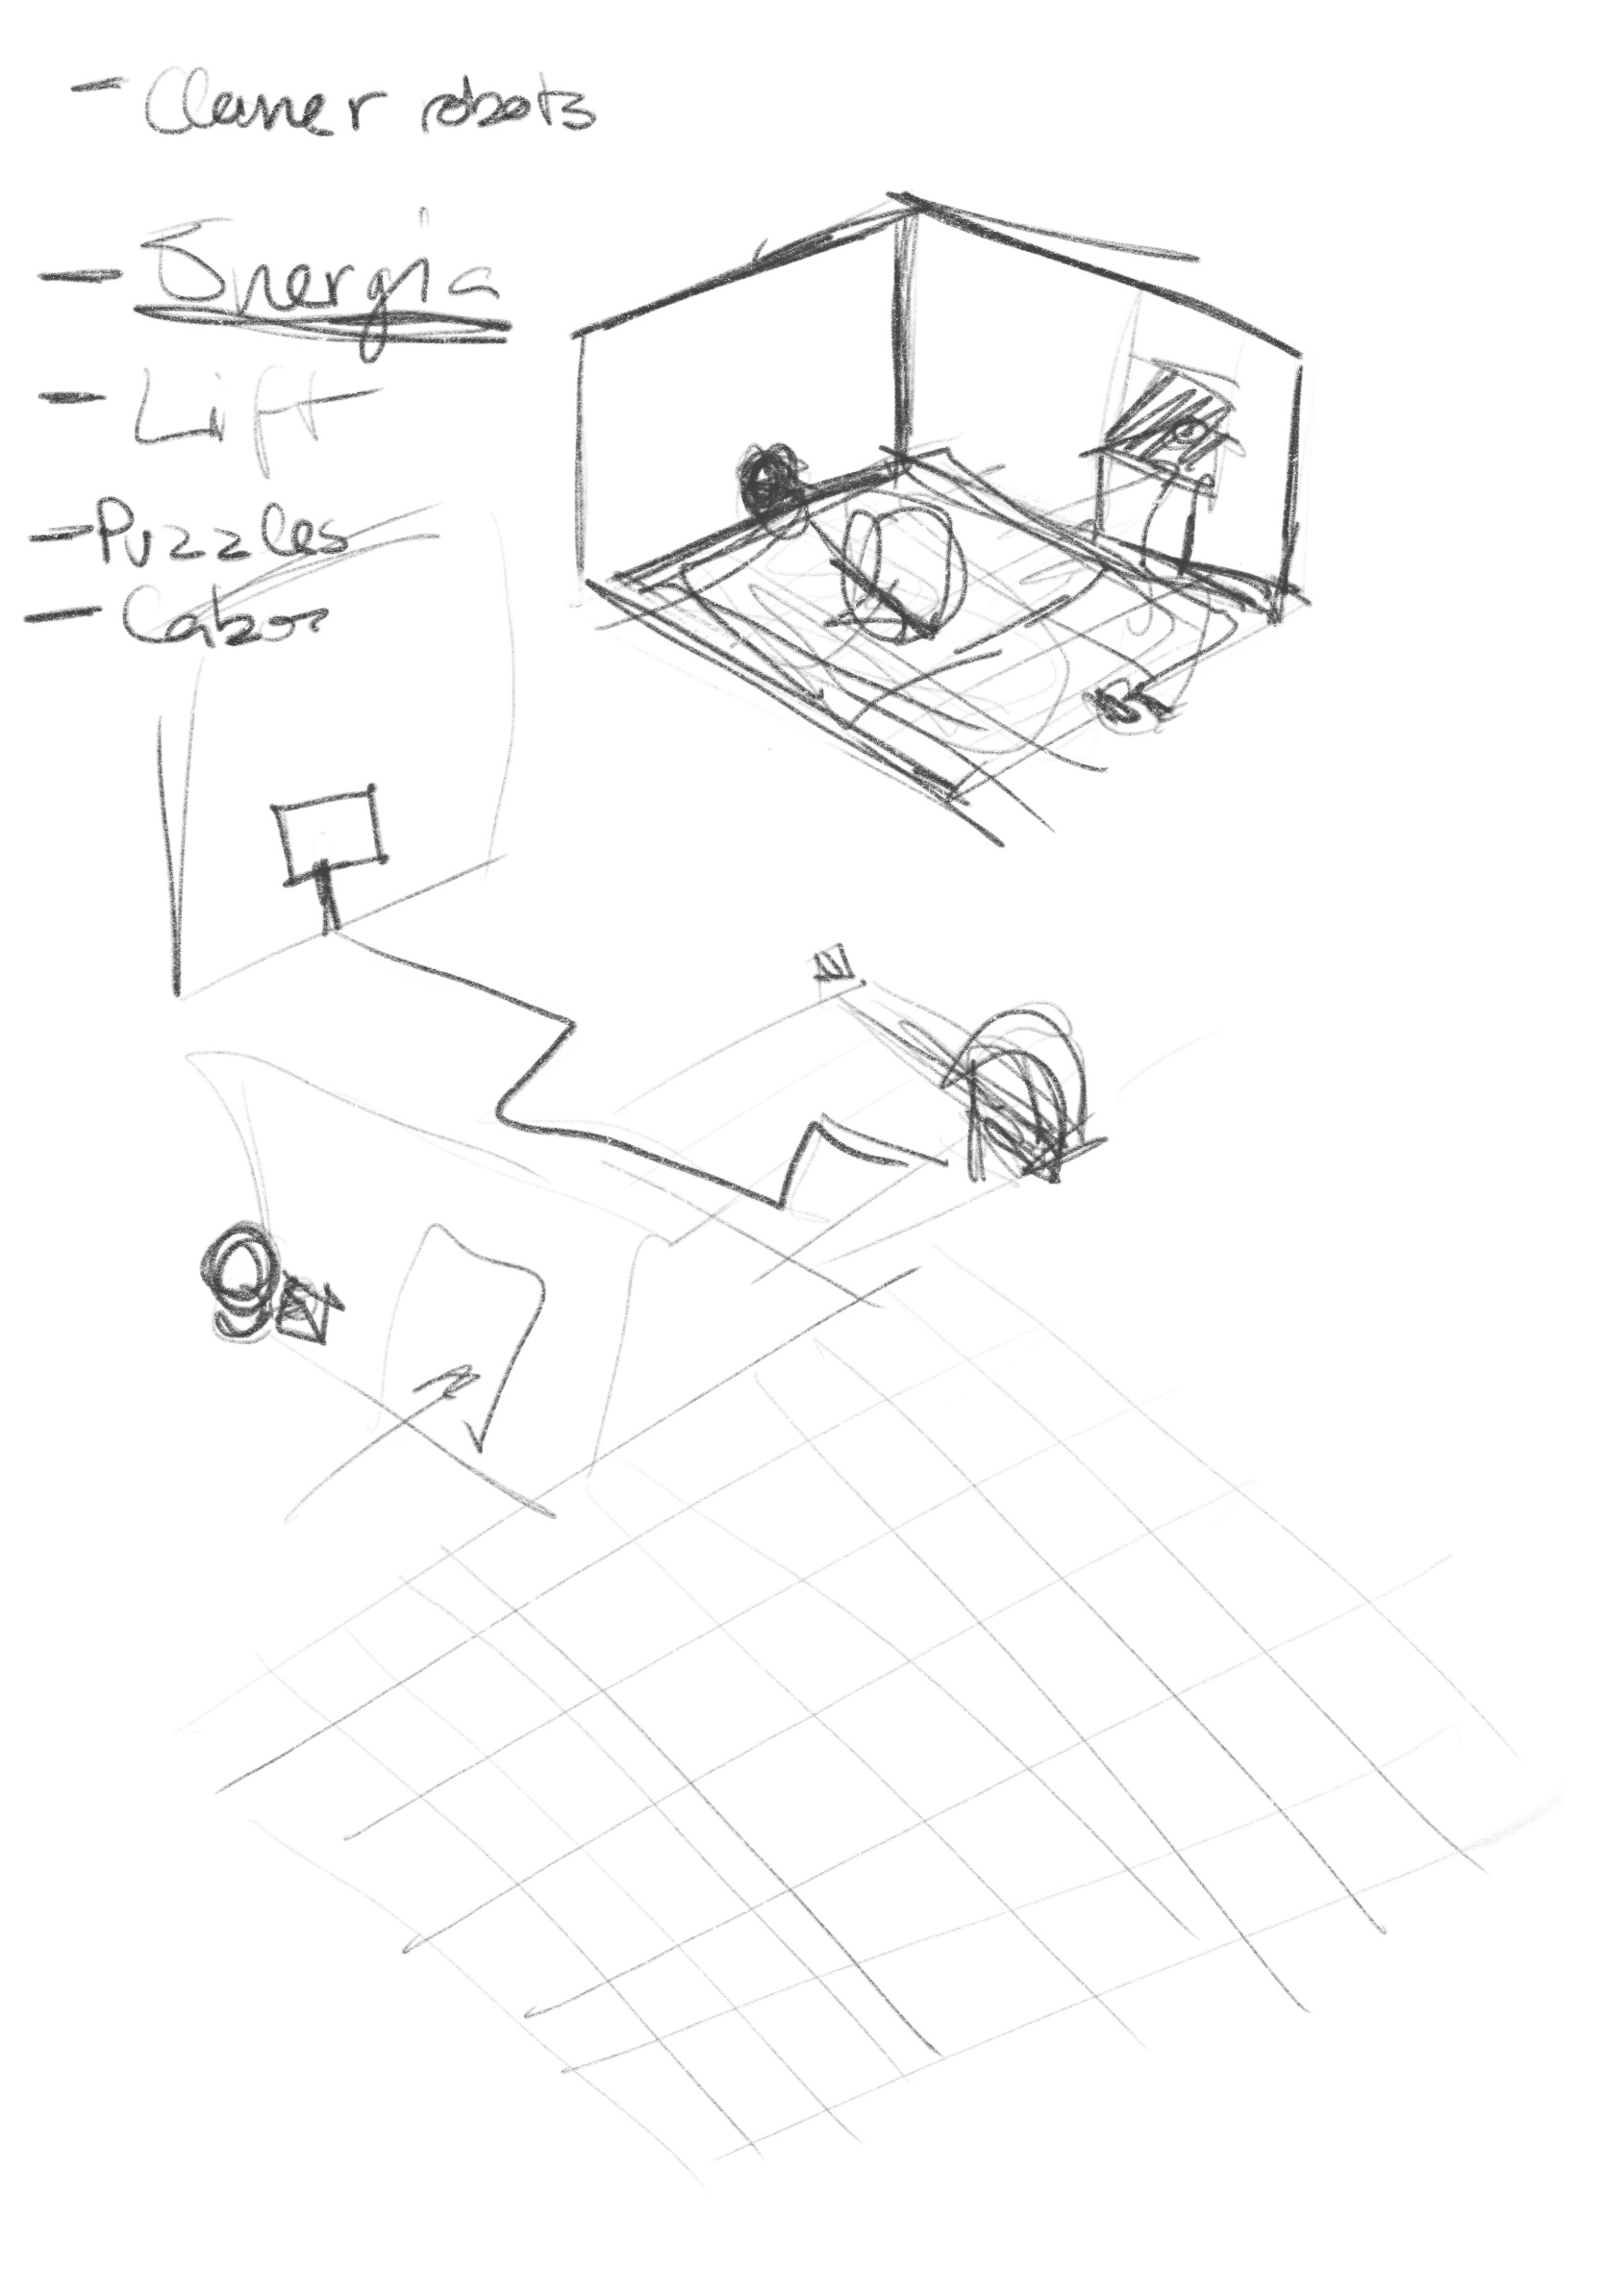 - Cleaner robots
- Energia
- Lift
- Puzzles
-